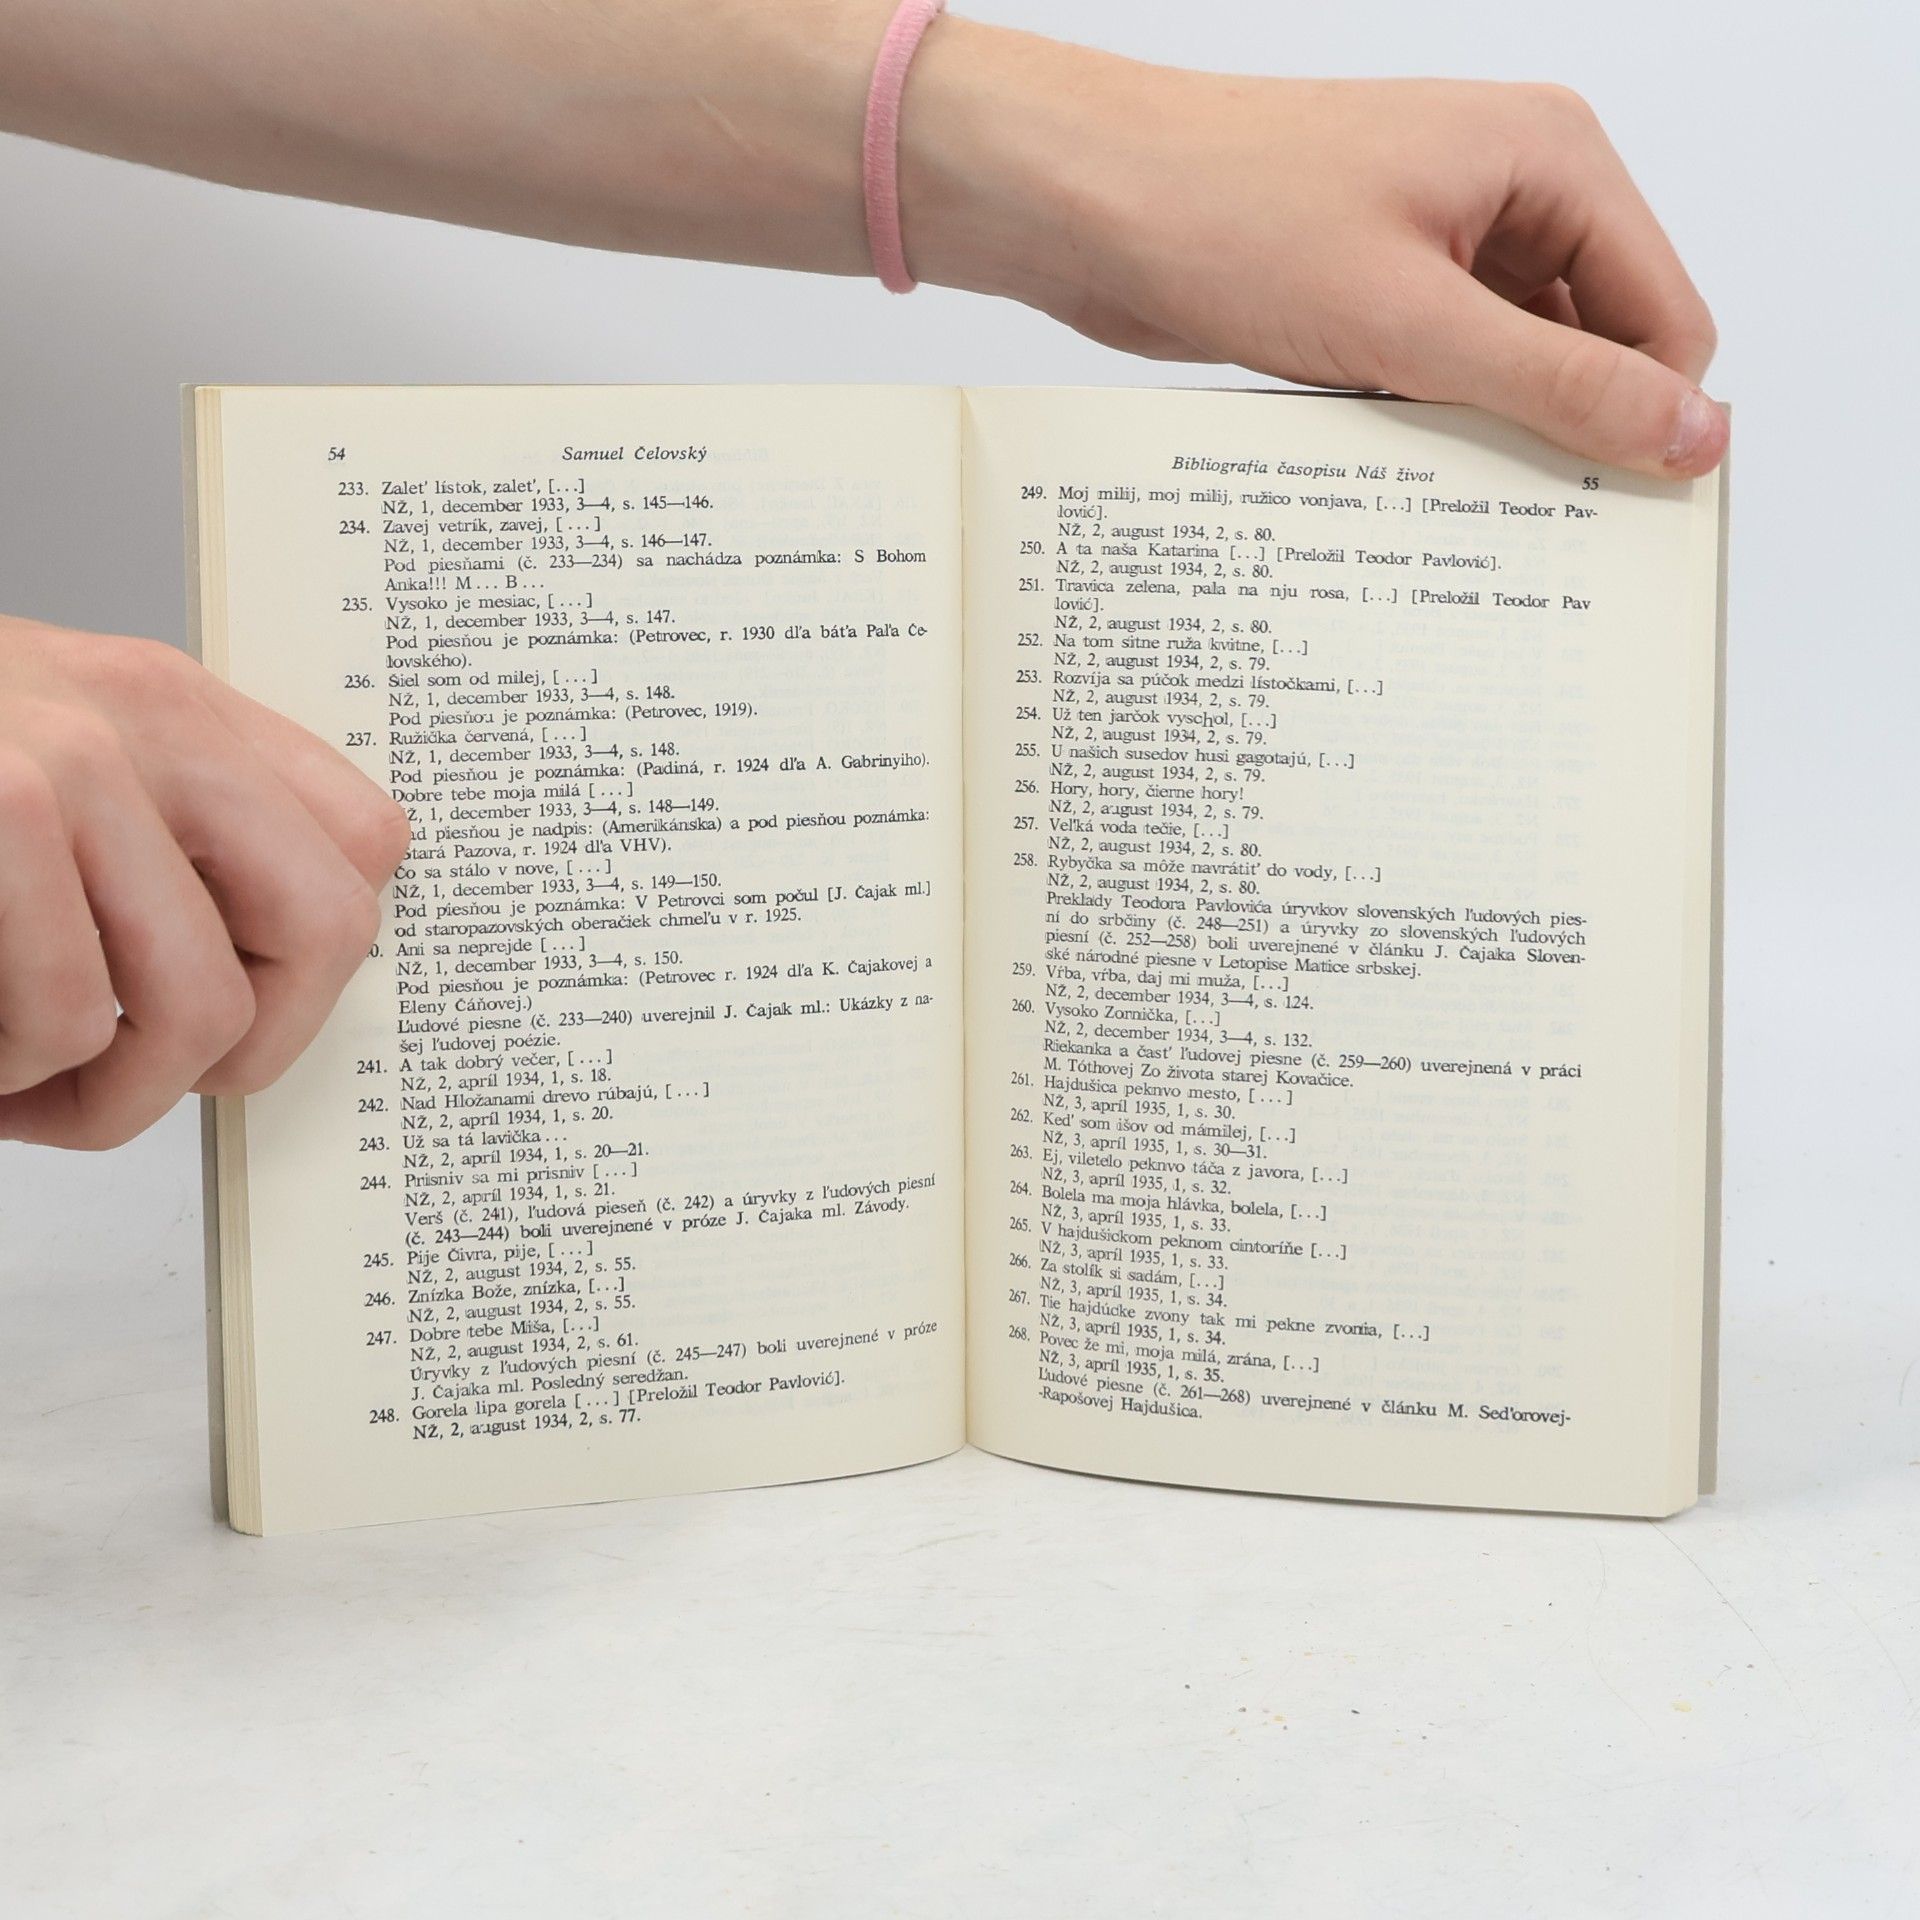 54
Samuel Čelovský
233. Zaleť lístok, zaleť, [...]
NŽ, 1, december 1933, 3—4, s. 145—146.
234. Zavej vetrík, zavej, [...]
NŽ, 1, december 1933, 3—4, s. 146—147.
Pod piesňami (č. 233—234) sa nachádza poznámka: S Bohom
Anka!!! M... B...
235. Vysoko je mesiac, [...]
NŽ, 1, december 1933, 3—4, s. 147.
Pod piesňou je poznámka: (Petrovec, r. 1930 dľa báťa Paľa Če-
lovského).
236. Šiel som od milej, [...]
NŽ, 1, december 1933, 3—4, s. 148.
Pod piesňou je poznámka: (Petrovec, 1919).
237. Ružička červená, [...]
NŽ, 1, december 1933, 3—4, s. 148.
Pod piesňou je poznámka: (Padiná, r. 1924 dľa A. Gabrinyiho).
Dobre tebe moja milá [...]
Ž, 1, december 1933, 3—4, s. 148—149.
d piesňou je nadpis: (Amerikánska) a pod piesňou poznámka:
Stará Pazova, r. 1924 dľa VHV).
Čo sa stálo v nove, [...]
NŽ, 1, december 1933, 3—4, s. 149—150.
Pod piesňou je poznámka: V Petrovci som počul [J. Čajak ml.]
od staropazovských oberačiek chmeľu v r. 1925.
0. Ani sa neprejde [...]
NŽ, 1, december 1933, 3—4, s. 150.
Pod piesňou je poznámka: (Petrovec r. 1924 dľa K. Čajakovej a
Eleny Čáňovej.)
Ľudové piesne (č. 233—240) uverejnil J. Čajak ml.: Ukážky z na-
šej ľudovej poézie.
241. A tak dobrý večer, [...]
NŽ, 2, apríl 1934, 1, s. 18.
242. Nad Hložanami drevo rúbajú, [...]
NŽ, 2, apríl 1934, 1, s. 20.
243. Už sa tá lavička...
NŽ, 2, apríl 1934, 1, s. 20—21.
244. Prisniv sa mi prisniv [...]
NŽ, 2, apríl 1934, 1, s. 21.
Verš (č. 241), ľudová pieseň (č. 242) a úryvky z ľudových piesní
(č. 243—244) boli uverejnené v próze J. Čajaka ml. Závody.
245. Pije Čivra, pije, [...]
NŽ, 2, august 1934, 2, s. 55.
246. Znízka Bože, znízka, [...]
NŽ, 2, august 1934, 2, s. 55.
247. Dobre tebe Miša, [...]
NŽ, 2, august 1934, 2, s. 61.
Úryvky z ľudových piesní (č. 245—247) boli uverejnené v próze
J. Čajaka ml. Posledný seredžan.
248. Gorela lipa gorela [...] [Preložil Teodor Pavlović].
NŽ, 2, august 1934, 2, s. 77.
Bibliografia časopisu Náš život
55
249. Moj milij, moj milij, ružico vonjava, [...] [Preložil Teodor Pav-
lović].
NŽ, 2, august 1934, 2, s. 80.
250. A ta naša Katarina [...] [Preložil Teodor Pavlović].
NŽ, 2, august 1934, 2, s. 80.
251. Travica zelena, pala na nju rosa, [...] [Preložil Teodor Pav
lović].
NŽ, 2, august 1934, 2, s. 80.
252. Na tom sitne ruža kvitne, [...]
NŽ, 2, august 1934, 2, s. 79.
253. Rozvíja sa púčok medzi lístočkami, [...]
NŽ, 2, august 1934, 2, s. 79.
254. Už ten jarčok vyschol, [...]
NŽ, 2, august 1934, 2, s. 79.
255. U našich susedov husi gagotajú, [...]
NŽ, 2, august 1934, 2, s. 79.
256. Hory, hory, čierne hory!
NŽ, 2, august 1934, 2, s. 79.
257. Veľká voda tečie, [...]
NŽ, 2, august 1934, 2, s. 80.
258. Rybyčka sa môže navrátiť do vody, [...]
NŽ, 2, august 1934, 2, s. 80.
Preklady Teodora Pavlovića úryvkov slovenských ľudových pies-
ní do srbčiny (č. 248—251) a úryvky zo slovenských ľudových
piesní (č. 252—258) boli uverejnené v článku J. Čajaka Sloven-
ské národné piesne v Letopise Matice srbskej.
259. Vŕba, vŕba, daj mi muža, [...]
NŽ, 2, december 1934, 3—4, s. 124.
260. Vysoko Zornička, [...]
NŽ, 2, december 1934, 3—4, s. 132.
Riekanka a časť ľudovej piesne (č. 259—260) uverejnená v práci
M. Tóthovej Zo života starej Kovačice.
261. Hajdušica peknvo mesto, [...]
NŽ, 3, apríl 1935, 1, s. 30.
262. Keď som išov od mámilej, [...]
NŽ, 3, apríl 1935, 1, s. 30—31.
263. Ej, viletelo peknvo táča z javora, [...]
NŽ, 3, apríl 1935, 1, s. 32.
264. Bolela ma moja hlávka, bolela, [...]
NŽ, 3, apríl 1935, 1, s. 33.
265. V hajdušickom peknom cintoríňe [...]
NŽ, 3, apríl 1935, 1, s. 33.
266. Za stolík si sadám, [...]
NŽ, 3, apríl 1935, 1, s. 34.
267. Tie hajdúcke zvony tak mi pekne zvonia, [...]
NŽ, 3, apríl 1935, 1, s. 34.
268. Povec že mi, moja milá, zrána, [...]
NŽ, 3, apríl 1935, 1, s. 35.
Ľudové piesne (č. 261—268) uverejnené v článku M. Seďorovej-
-Rapošovej Hajdušica.